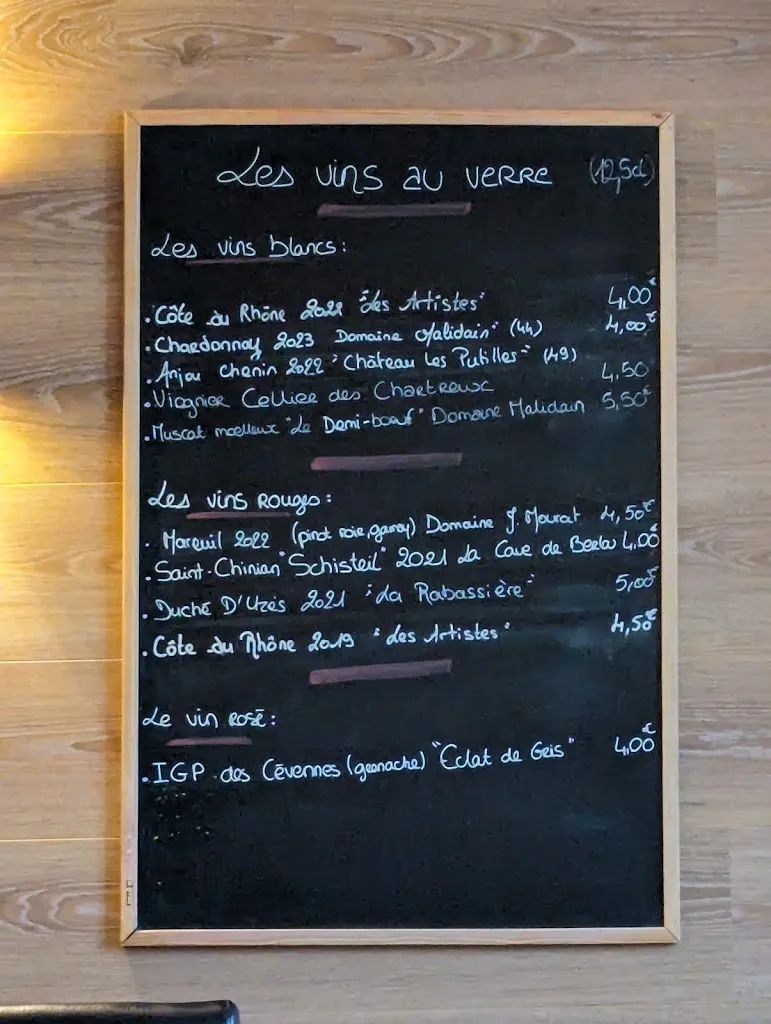 Les vins au verre (12,5cl)
Les vins blancs:
. Côte du Rhône 2022 "des Artistes" 4,00€
. Chardonnay 2023 Domaine Malidain" (44) 4,00€
. Anjou Chenin 2022 "Château Les Putilles" (49)
. Viognier Cellier des Chartreux 4,50
. Muscat moelleux "Le Demi-boeuf" Domaine Malidain 5,50€
Les vins rouges:
. Mareuil 2022 (pinot noir, gamay) Domaine J. Mourat 4,50€
. Saint-Chinian "Schisteil" 2021 La Cave de Berlou 4,00€
. Duché D'Uzès 2021 "La Rabassière" 5,00€
. Côte du Rhône 2019 "des Artistes" 4,50€
Le vin rosé:
. IGP des Cévennes (grenache) "Eclat de Gris" 4,00€